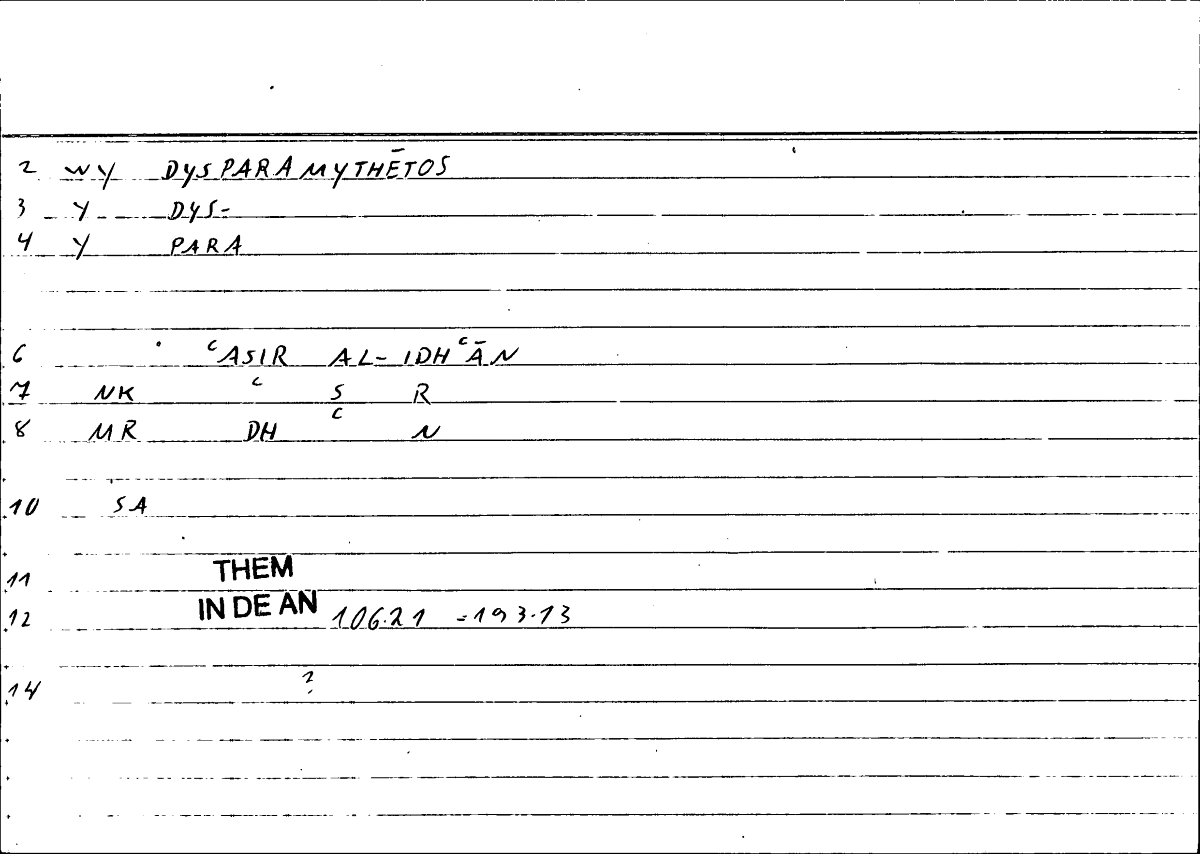 2 WY DYSPARAMYTHĒTOS
3 Y DYS-
4 Y PARA
6 ᶜASIR AL-IDHᶜĀN
7 NK ᶜ S R
8 MR DH ᶜ N
10 SA
11 THEM
12 IN DE AN 106.21 =193.13
14 ?